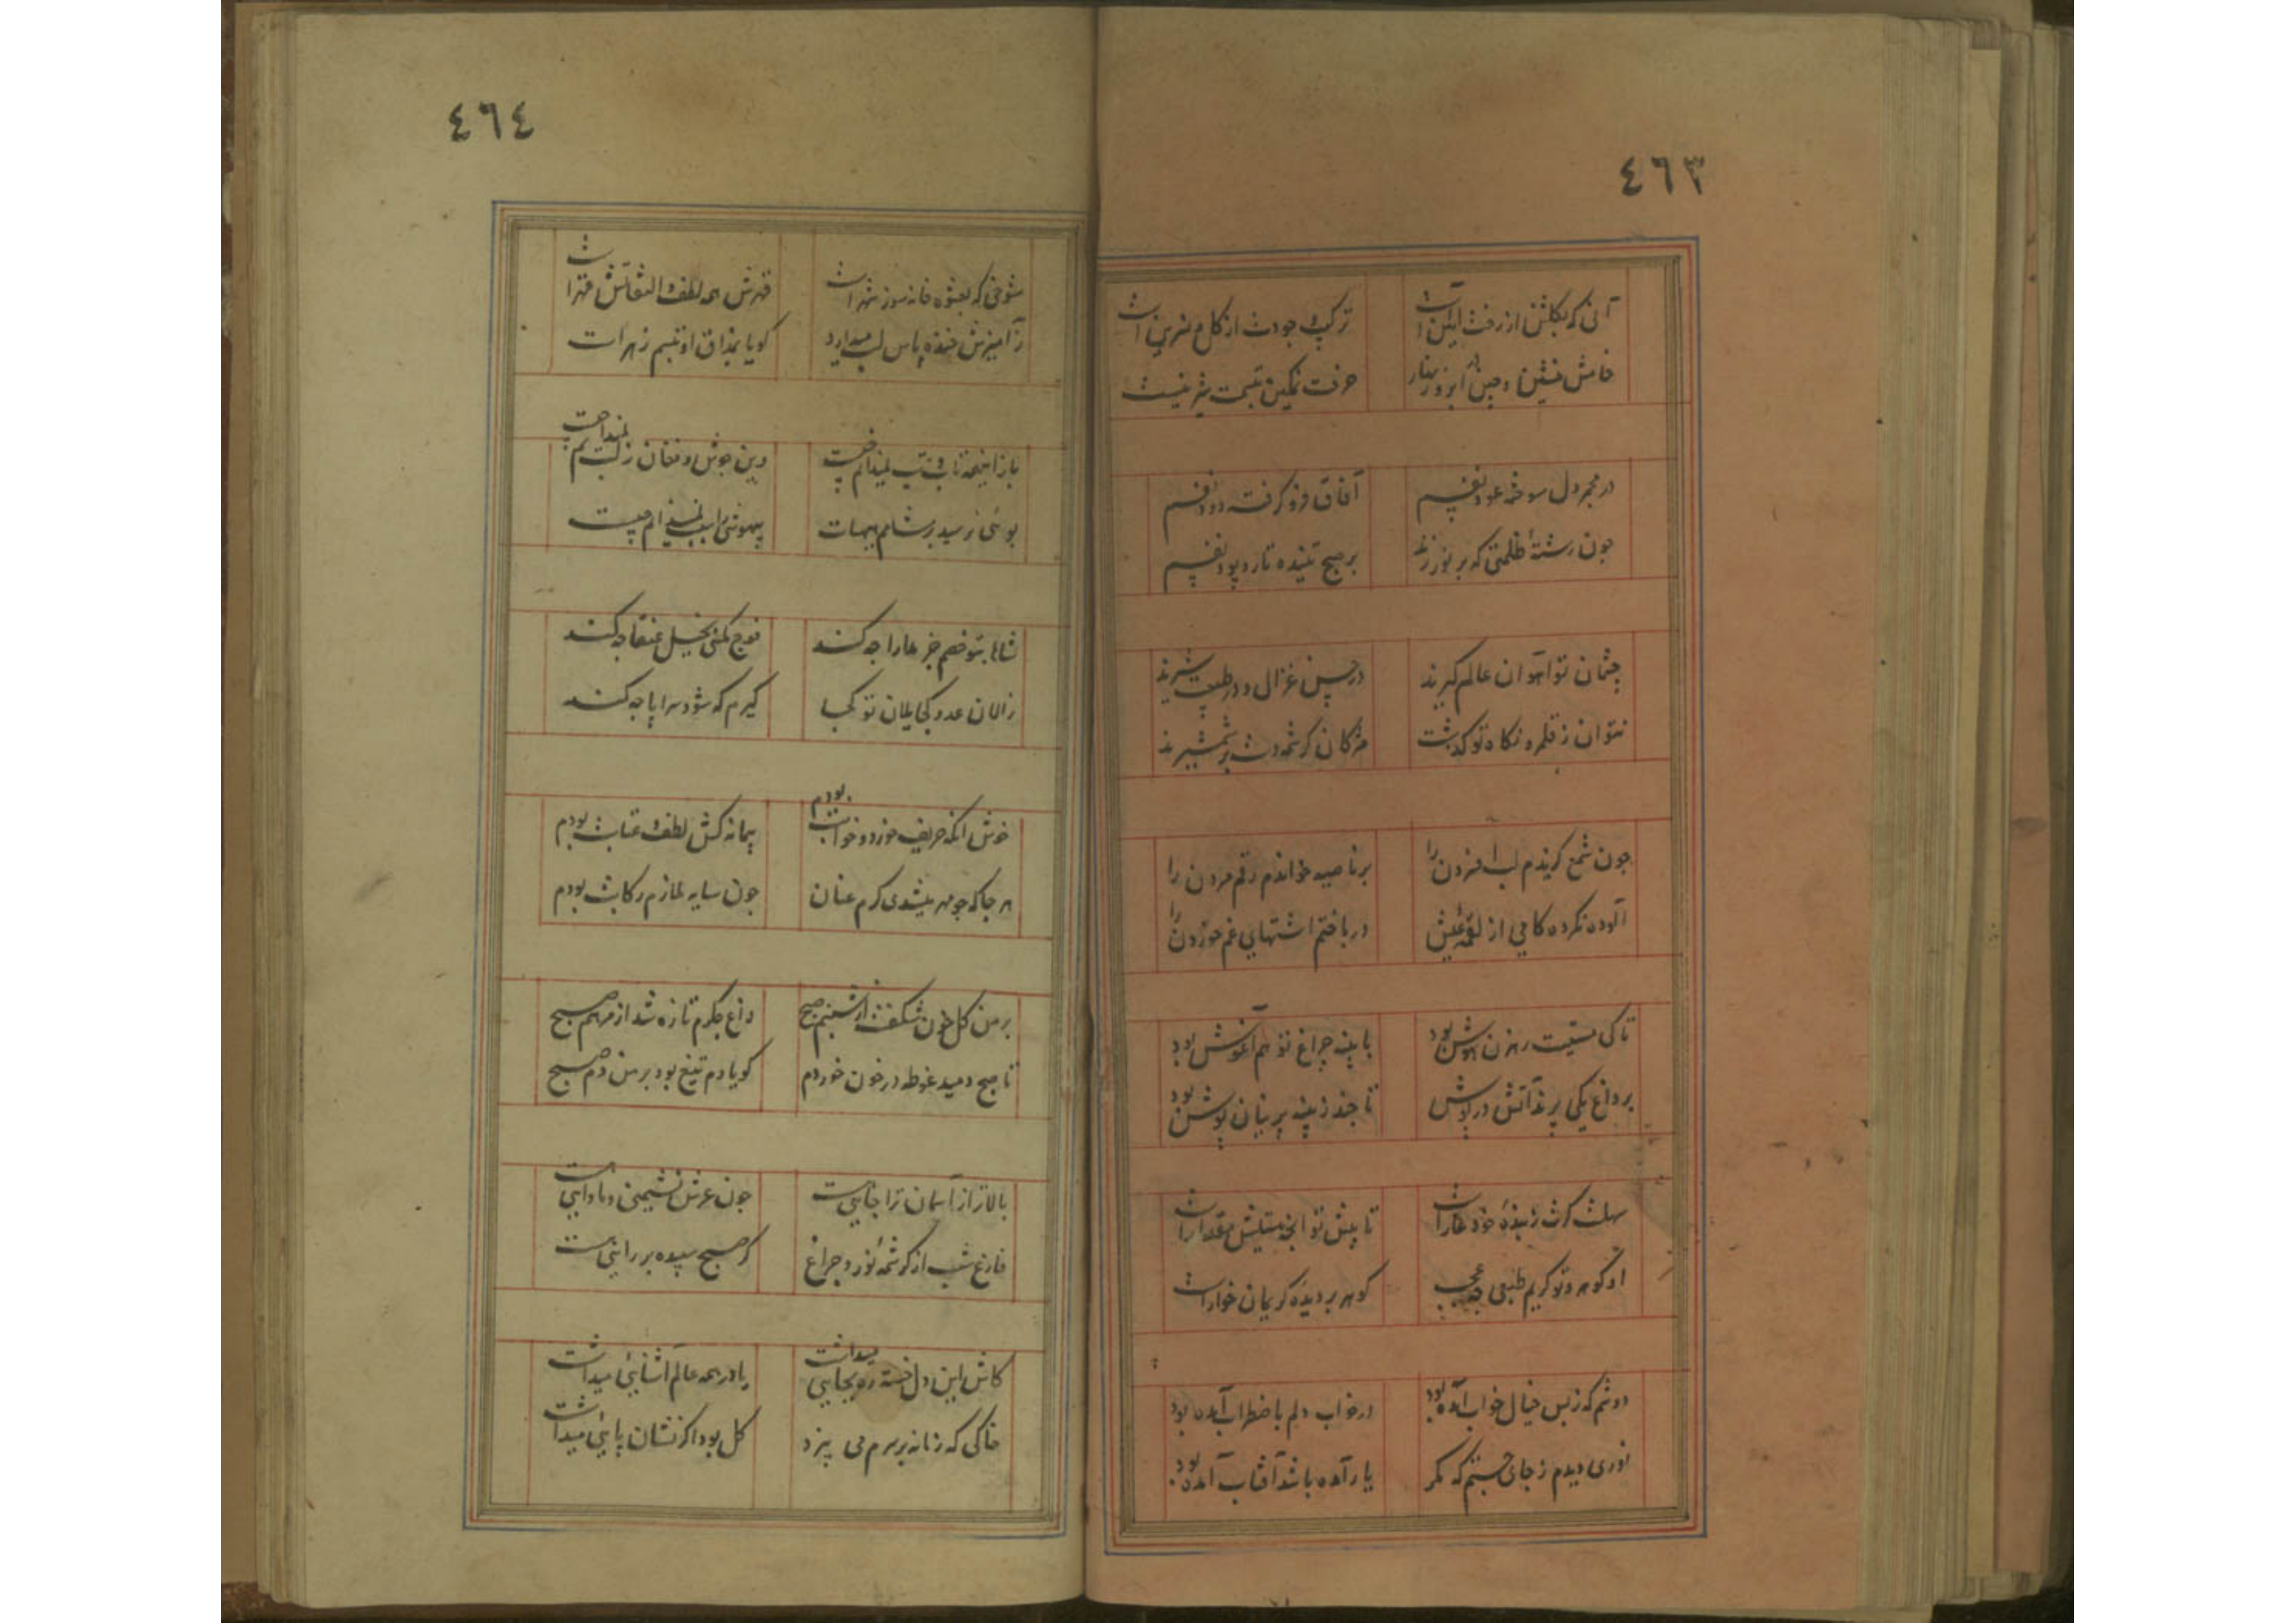 ٤٦٣
آنی که بگلشن از رخت آیین است ترکیب وجودت از گل و نسرین است
خامش منشین و چین بر ابرو زنهار حرفت نمکین تبسمت شیرینست
در مجمر دل سوخته عود نفسم آفاق فرو گرفته دود نفسم
چون رشته ظلمتی که بر نور زند بر صبح تنیده تار و پود نفسم
چشمان تو آهوان عالم گیرند در حسن غزال و در طبیعت شیرند
نتوان ز قلمرو نگاه تو گذشت مژگان کرشمه دست بر شمشیرند
چون شمع گزیدم لب افسردن را بر ناصیه خواندم رقم مردن را
آلوده نکرده کامی از لقمه عیش در باختم اشتهای غم خوردن را
تا کی مستیت رهزن هوش بود با پنبه چراغ تو هم آغوش بود
بر داغ یکی پرند آتش در پوش تا چند ز پنبه پرنیان پوش بود
سهلست گرت ز بنده خود عار است تا پیش تو اینجنستیش مقدار است
او گوهر و تو کریم طبعی چه عجب گوهر بر دیده کریمان خوار است
دوشم که ز بس خیال خواب آمده بود در خواب دلم باضطراب آمده بود
نوری دیدم ز جای جستم که مگر یار آمده باشد آفتاب آمده بود
٤٦٤
شوخی که بعشوه خانه سوز شهر است قهرش همه لطف و التفاتش قهر است
ز آمیزش خنده پاس لب میدارد گویا بمذاق او تبسم زهر است
باز اینهمه تاب و تب نمیدانم چیست وین جوش و فغان ز لب نمیدانم چیست
بوئی نرسید بر مشامم هیهات بیهوشی را سبب نمیدانم چیست
شاها بتو خصم جز مدارا چه کند فوج مگسی بخیل عنقا چه کند
زالان عدو کجا یلان تو کجا گیرم که شود سراپا چه کند
خوش آنکه حریف خورد و خوابت بودم پیمانه کش لطف و عتابت بودم
هر جا که چو مه میشدی گرم عنان چون سایه ملازم رکابت بودم
بر من گل خون شکفت از شبنم صبح داغ جگرم تازه شد از مرهم صبح
تا صبح دمید غوطه در خون خوردم گویا دم تیغ بود بر من دم صبح
بالاتر از آسمان ترا جائی هست چون عرش نشیمنی و ماوایی هست
فارغ شب از کرشمه نور و چراغ گر صبح سپیده بر رایی هست
کاش این دل خسته ره بجایی میداشت یا در همه عالم آشنائی میداشت
خاکی که زمانه بر سرم می بیزد گل بود اگر نشان پایی میداشت